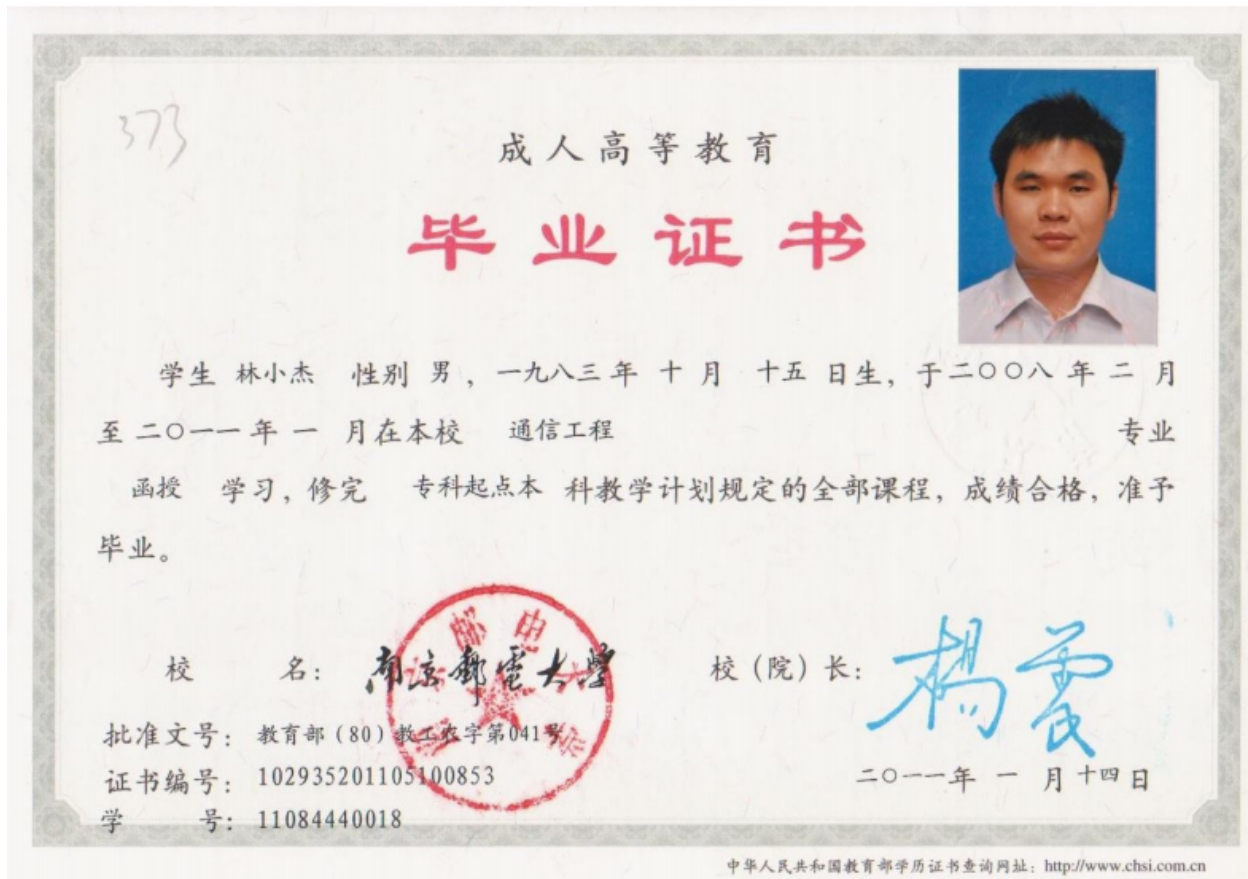 373
成人高等教育
毕业证书
学生 林小杰 性别 男，一九八三年 十 月 十五 日生，于二〇〇八 年 二 月
至 二〇一一 年 一 月在本校 通信工程 专业
函授 学习，修完 专科起点本 科教学计划规定的全部课程，成绩合格，准予
毕业。
校 名： 南京邮电大学
校（院）长：
批准文号： 教育部（80）教工农字第041号
证书编号： 102935201105100853
二〇一一年 一 月十四日
学 号： 11084440018
中华人民共和国教育部学历证书查询网址：http://www.chsi.com.cn